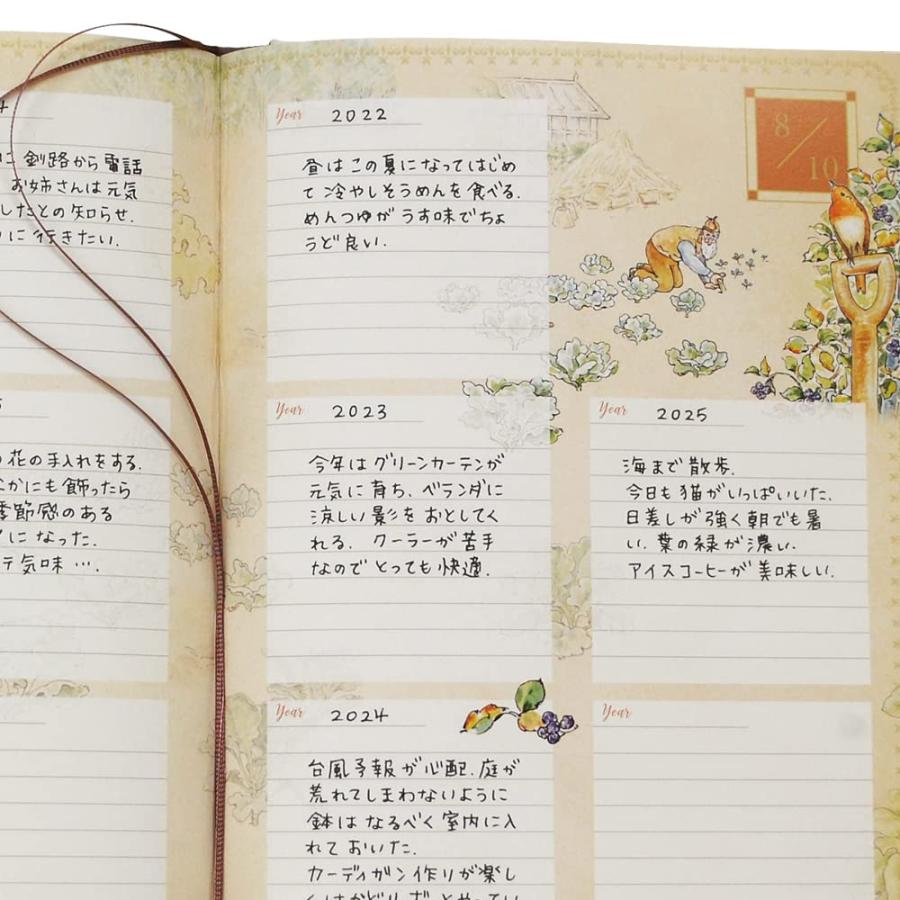 に釧路から電話
お姉さんは元気
したとの知らせ.
に行きたい.
の花の手入れをる.
にも飾ったら
季節感のある
になった.
気味….
Year 2022
昼はこの夏になってはじめ
て冷やしそうめんを食べる.
めんつゆがうす味でちょ
うど良い.
8/10
Year 2023
今年はグリーンカーテンが
元気に育ち、ベランダに
涼しい影をおとしてく
れる. クーラーが苦手
なのでとっても快適.
Year 2025
海まで散歩.
今日も猫がいっぱいいた.
日差しが強く朝でも暑
い. 葉の緑が濃い.
アイスコーヒーが美味しい.
Year 2024
台風予報が心配. 庭が
荒れてしまわないように
鉢はなるべく室内に入
れておいた.
カーディガン作りが楽し
Year